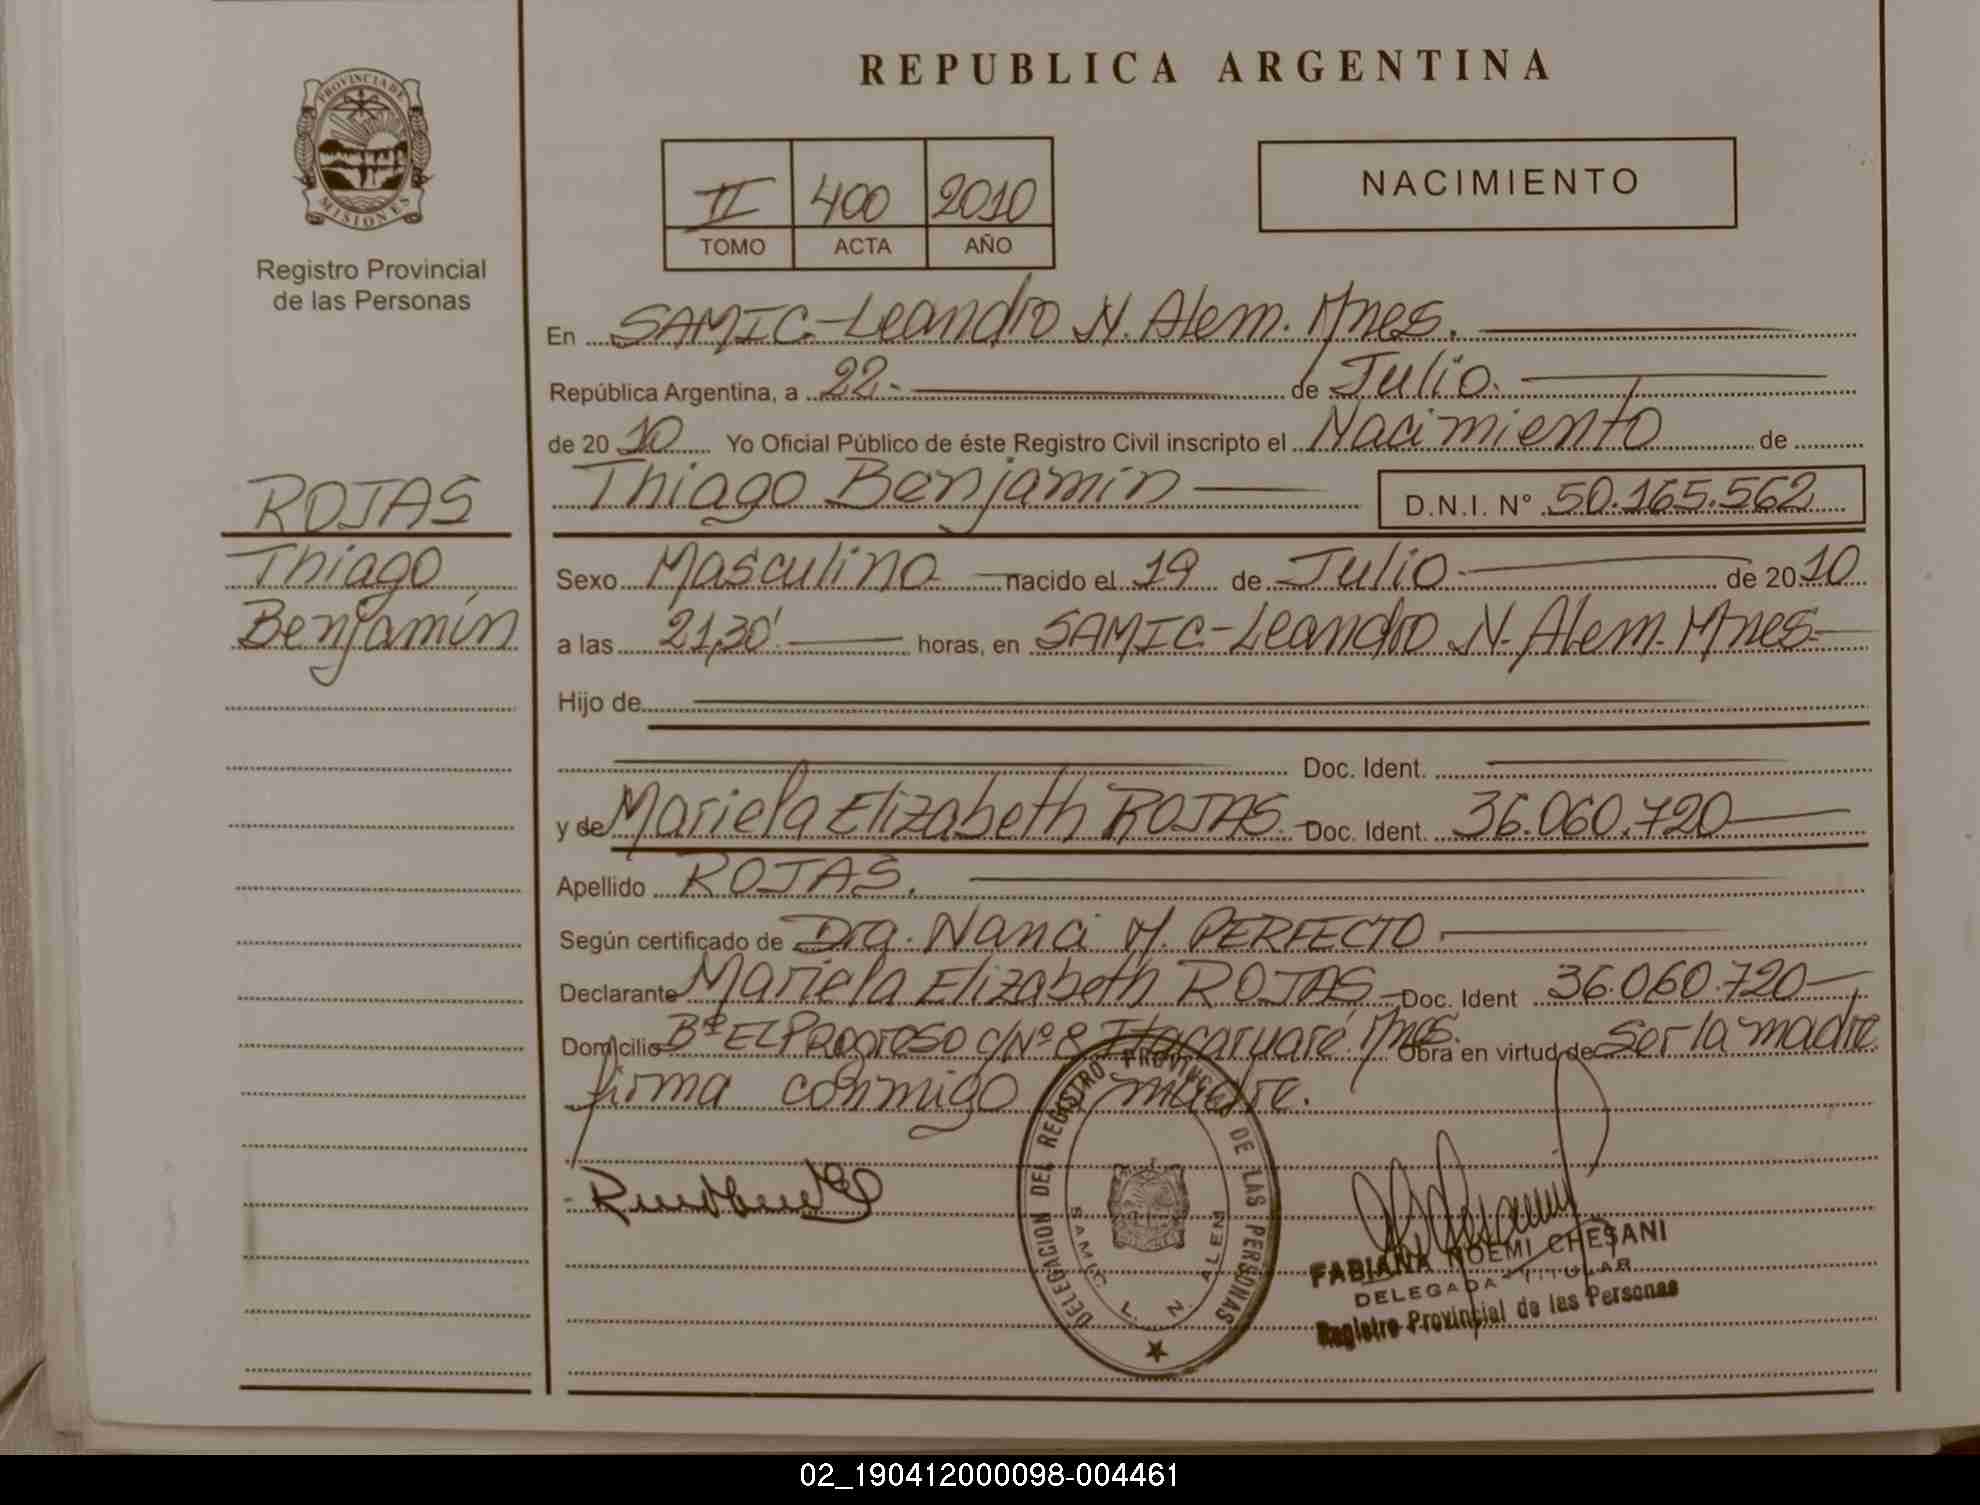 REPUBLICA ARGENTINA
PROVINCIA DE
MISIONES
Registro Provincial
de las Personas
II 400 2010
TOMO ACTA AÑO
NACIMIENTO
En SAMIC-Leandro N. Alem. Mnes.
República Argentina, a 22 de Julio.
de 20 10 Yo Oficial Público de éste Registro Civil inscripto el Nacimiento de
Thiago Benjamín D.N.I. N° 50.165.562
ROJAS
Thiago
Benjamín
Sexo Masculino nacido el 19 de Julio de 20 10
a las 21,30' horas, en SAMIC-Leandro N. Alem. Mnes.
Hijo de
Doc. Ident.
y de Mariela Elizabeth ROJAS. Doc. Ident. 36.060.720
Apellido ROJAS.
Según certificado de Dra. Nanci M. PERFECTO
Declarante Mariela Elizabeth ROJAS Doc. Ident 36.060.720
Domicilio Bº EL Progroso c/Nº 8 Itacaruaré. Mnes. Obra en virtud de ser la madre
firma conmigo madre.
DELEGACION DEL REGISTRO PROVINCIAL DE LAS PERSONAS
SAMIC L. N. ALEM
FABIANA NOEMI CHESANI
DELEGADA TITULAR
Registro Provincial de las Personas
02_190412000098-004461